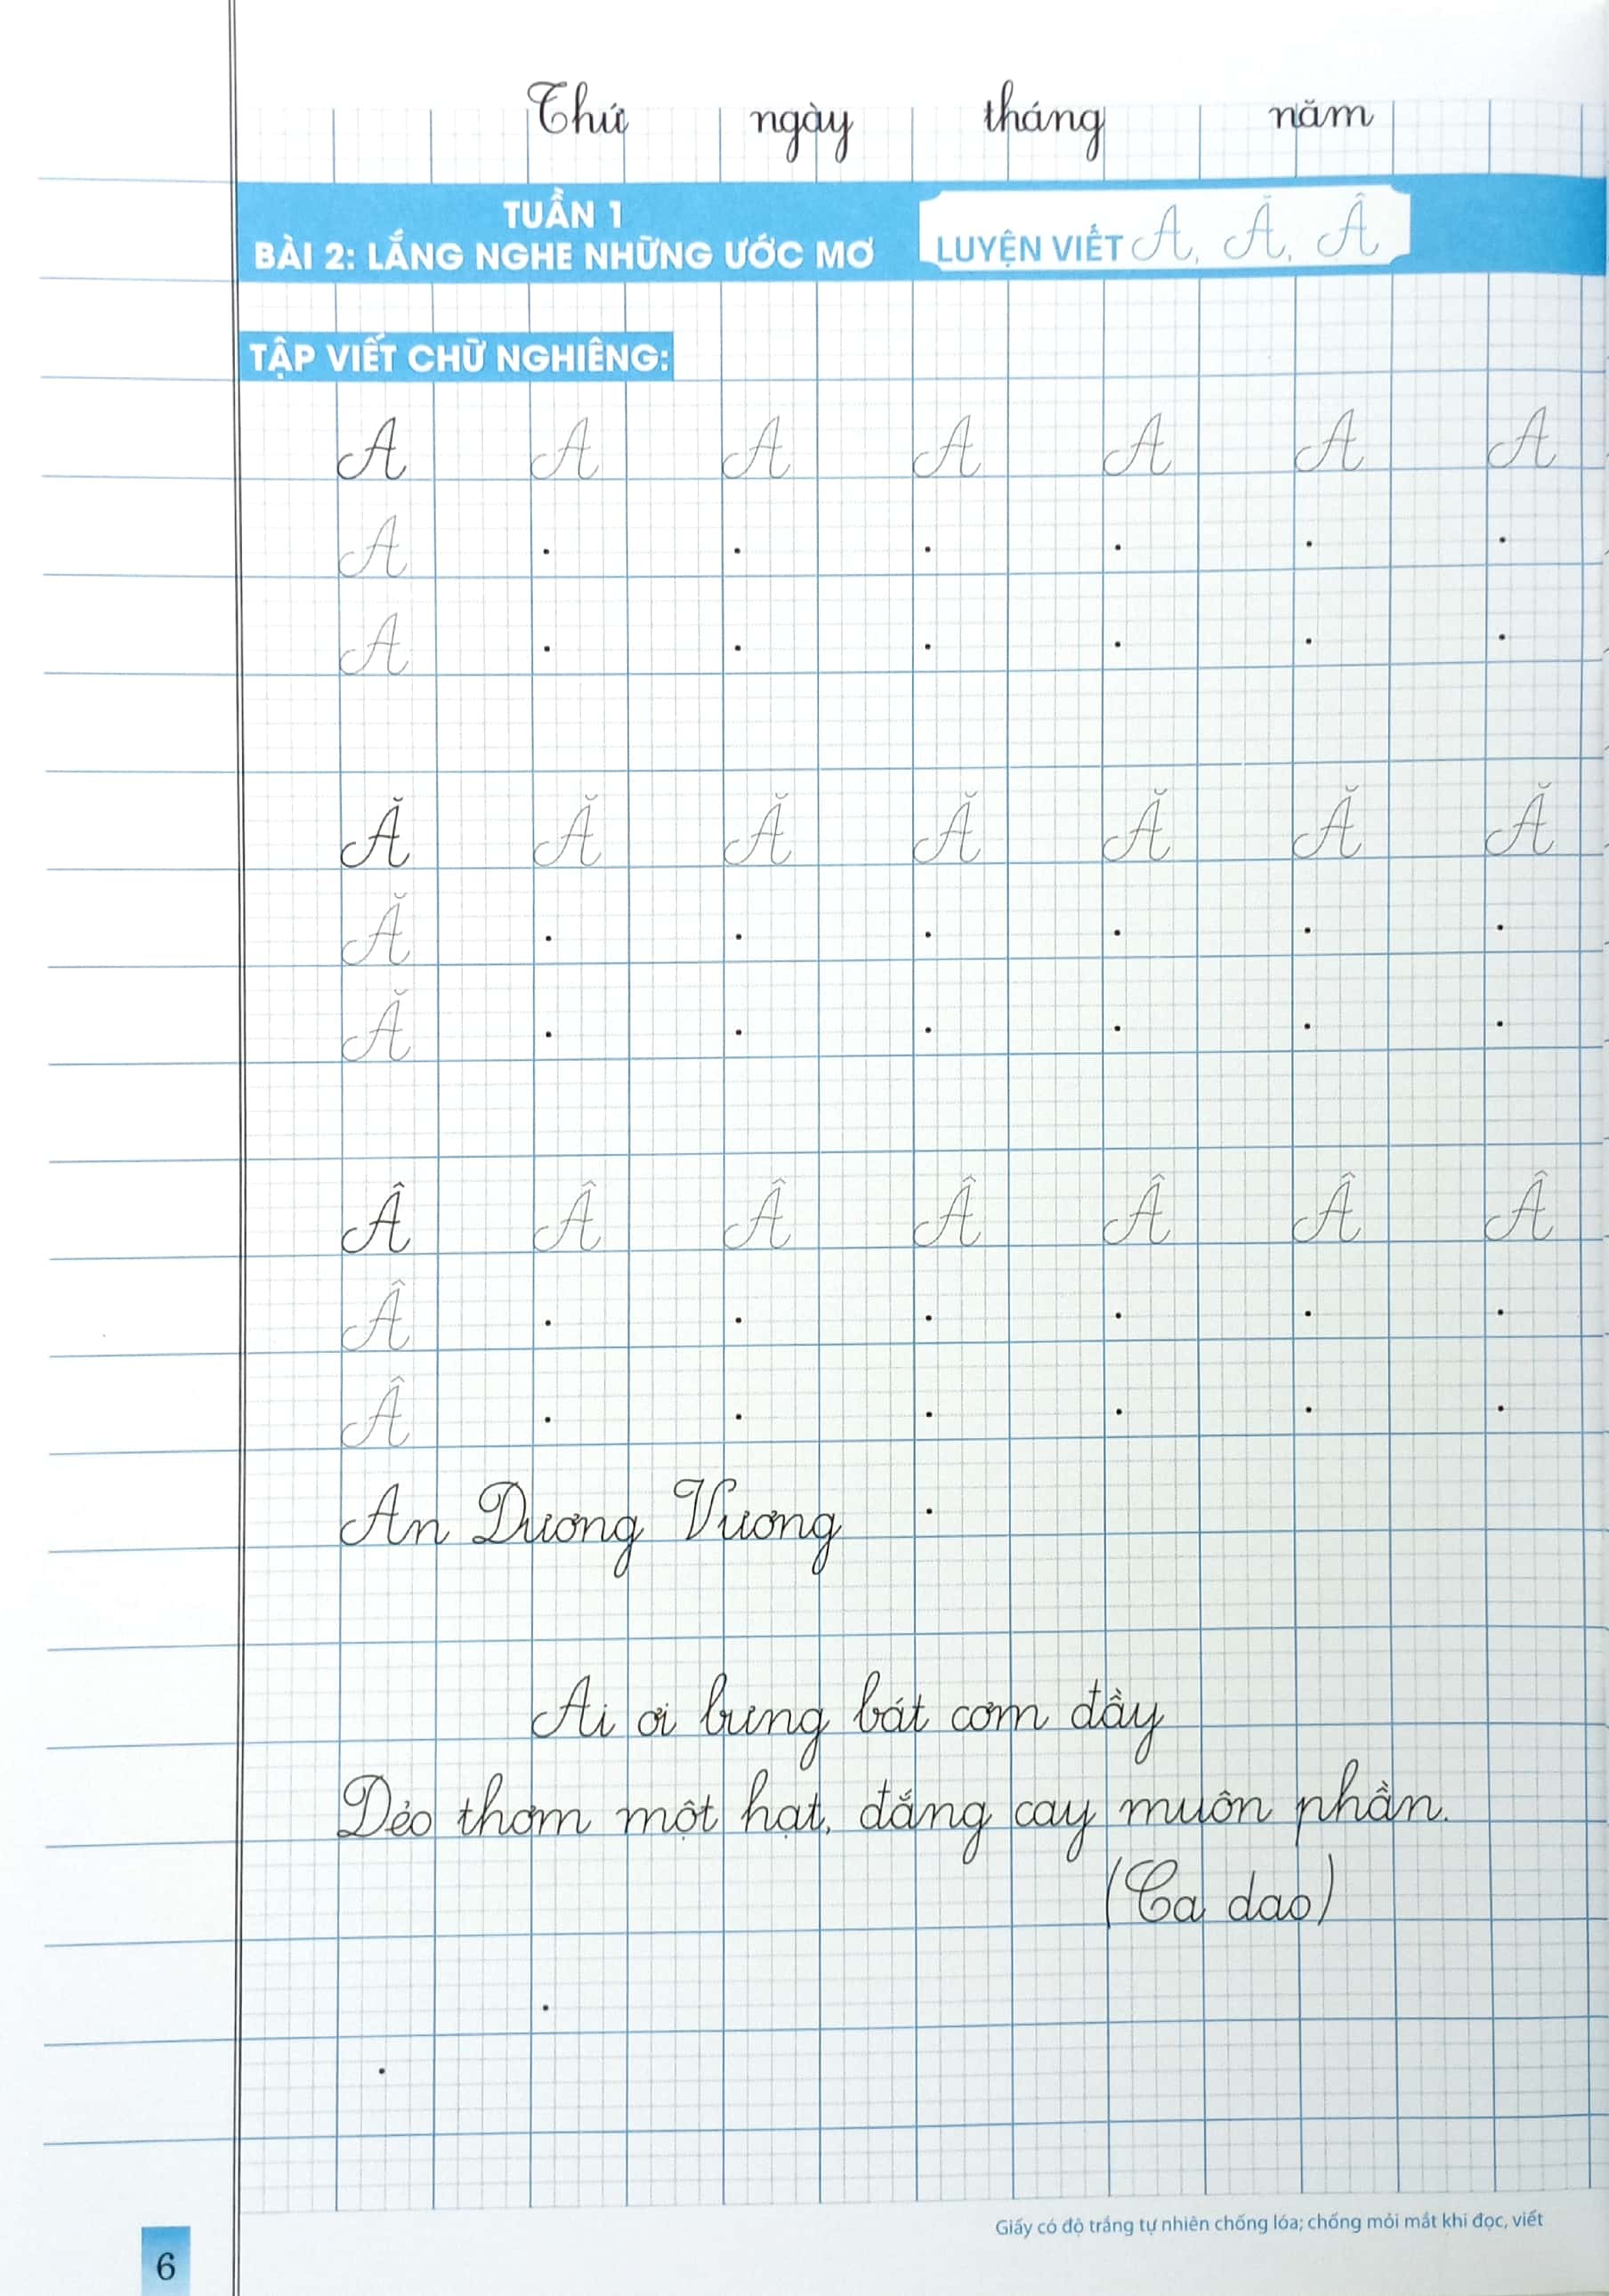 Thứ ngày tháng năm
TUẦN 1
BÀI 2: LẮNG NGHE NHỮNG ƯỚC MƠ
LUYỆN VIẾT A, Ă, Â
TẬP VIẾT CHỮ NGHIÊNG:
A A A A A A A
A . . . . . .
A . . . . . .
Ă Ă Ă Ă Ă Ă Ă
Ă . . . . . .
Ă . . . . . .
Â Â Â Â Â Â Â
Â . . . . . .
Â . . . . . .
An Dương Vương .
Ai ơi bưng bát cơm đầy
Dẻo thơm một hạt, đắng cay muôn phần.
(Ca dao)
.
.
Giấy có độ trắng tự nhiên chống lóa; chống mỏi mắt khi đọc, viết
6